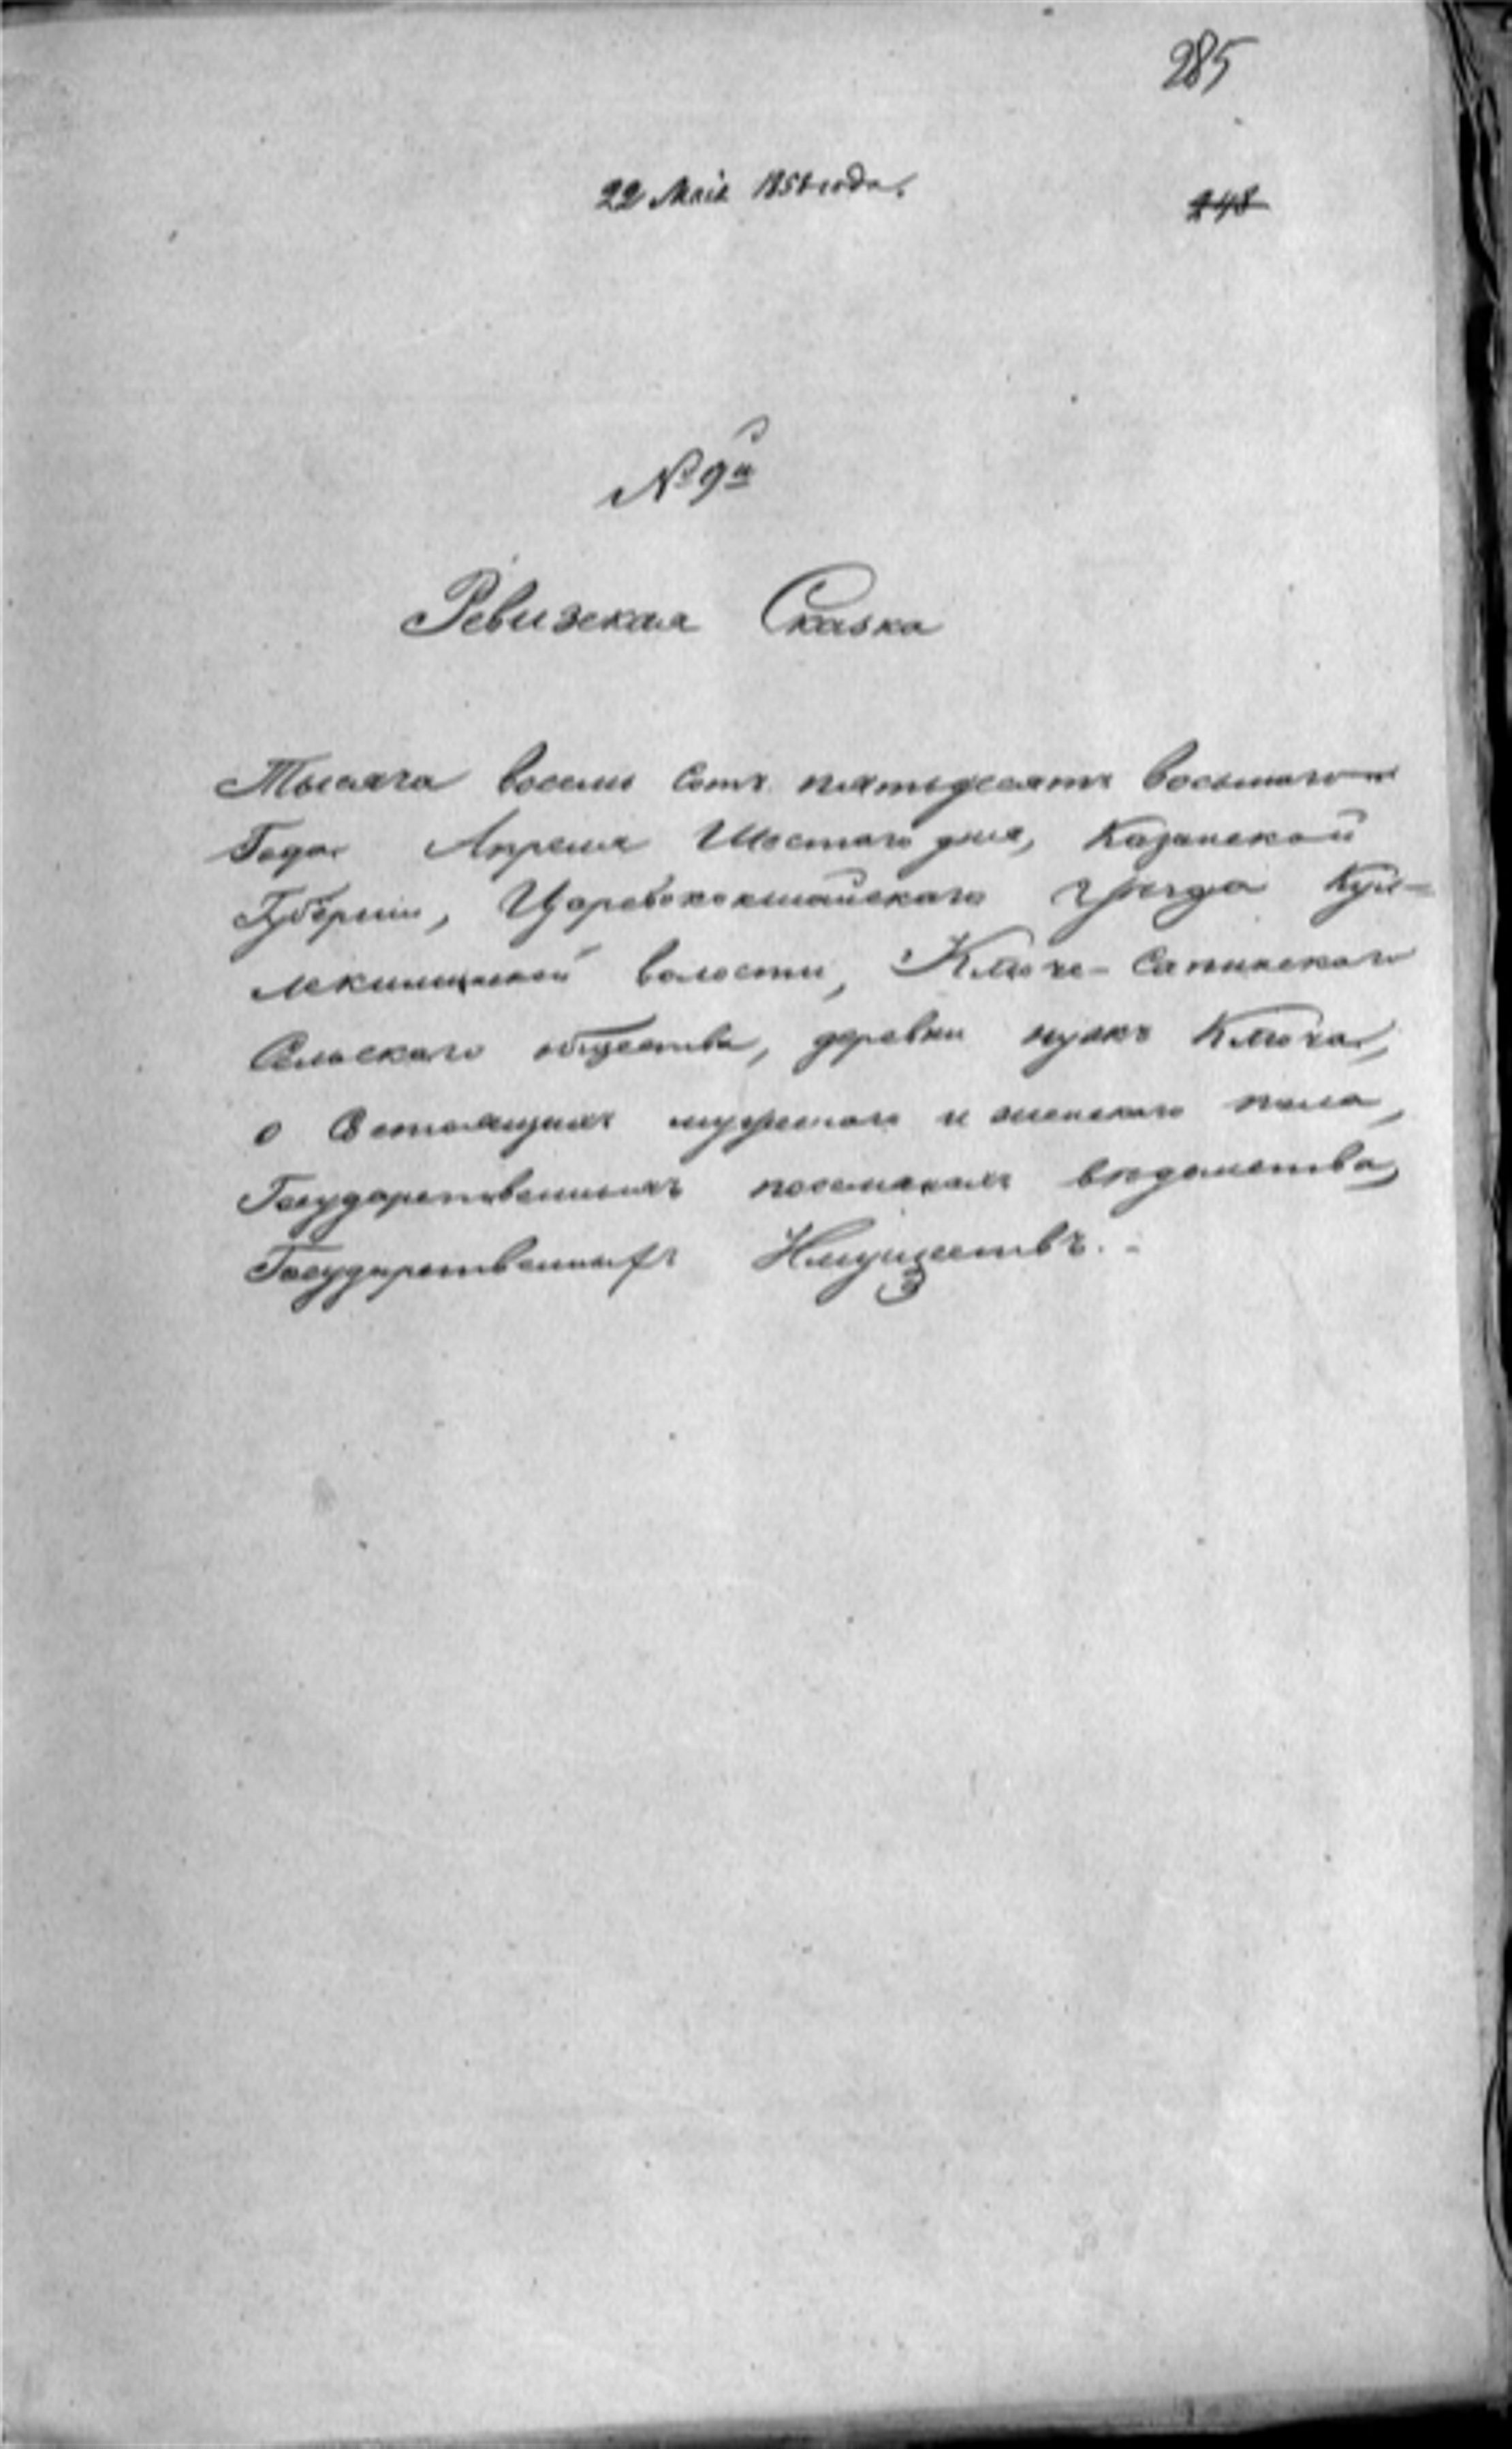 285
22 Маія 1858 года.
248
№ 9й
Ревизская Сказка
Тысяча восемь сотъ пятьдесятъ восьмаго
Года Апреля Шестаго дня, Казанской
Губерніи, Царевококшайскаго уѣзда Кул-
лекиминской волости, Ключе-Сапинскаго
Сельскаго общества, деревни Ключа,
о Состоящихъ мужескаго и женскаго пола,
Государственныхъ поселянахъ вѣдомства
Государственныхъ Имуществъ.